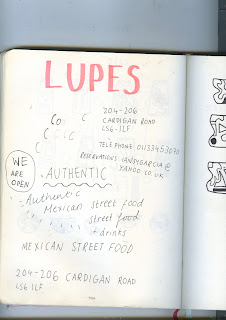 LUPES
Co C
204-206
CARDIGAN ROAD
LS6-1LF
C C L C
C
TELEPHONE: 01133453070
RESERVATIONS: IANDYGARCIA@
YAHOO.CO.UK
WE
ARE
OPEN
AUTHENTIC
- Authentic
Mexican street food
street food
+ drinks
MEXICAN STREET FOOD
204-206 CARDIGAN ROAD
LS6 1LF